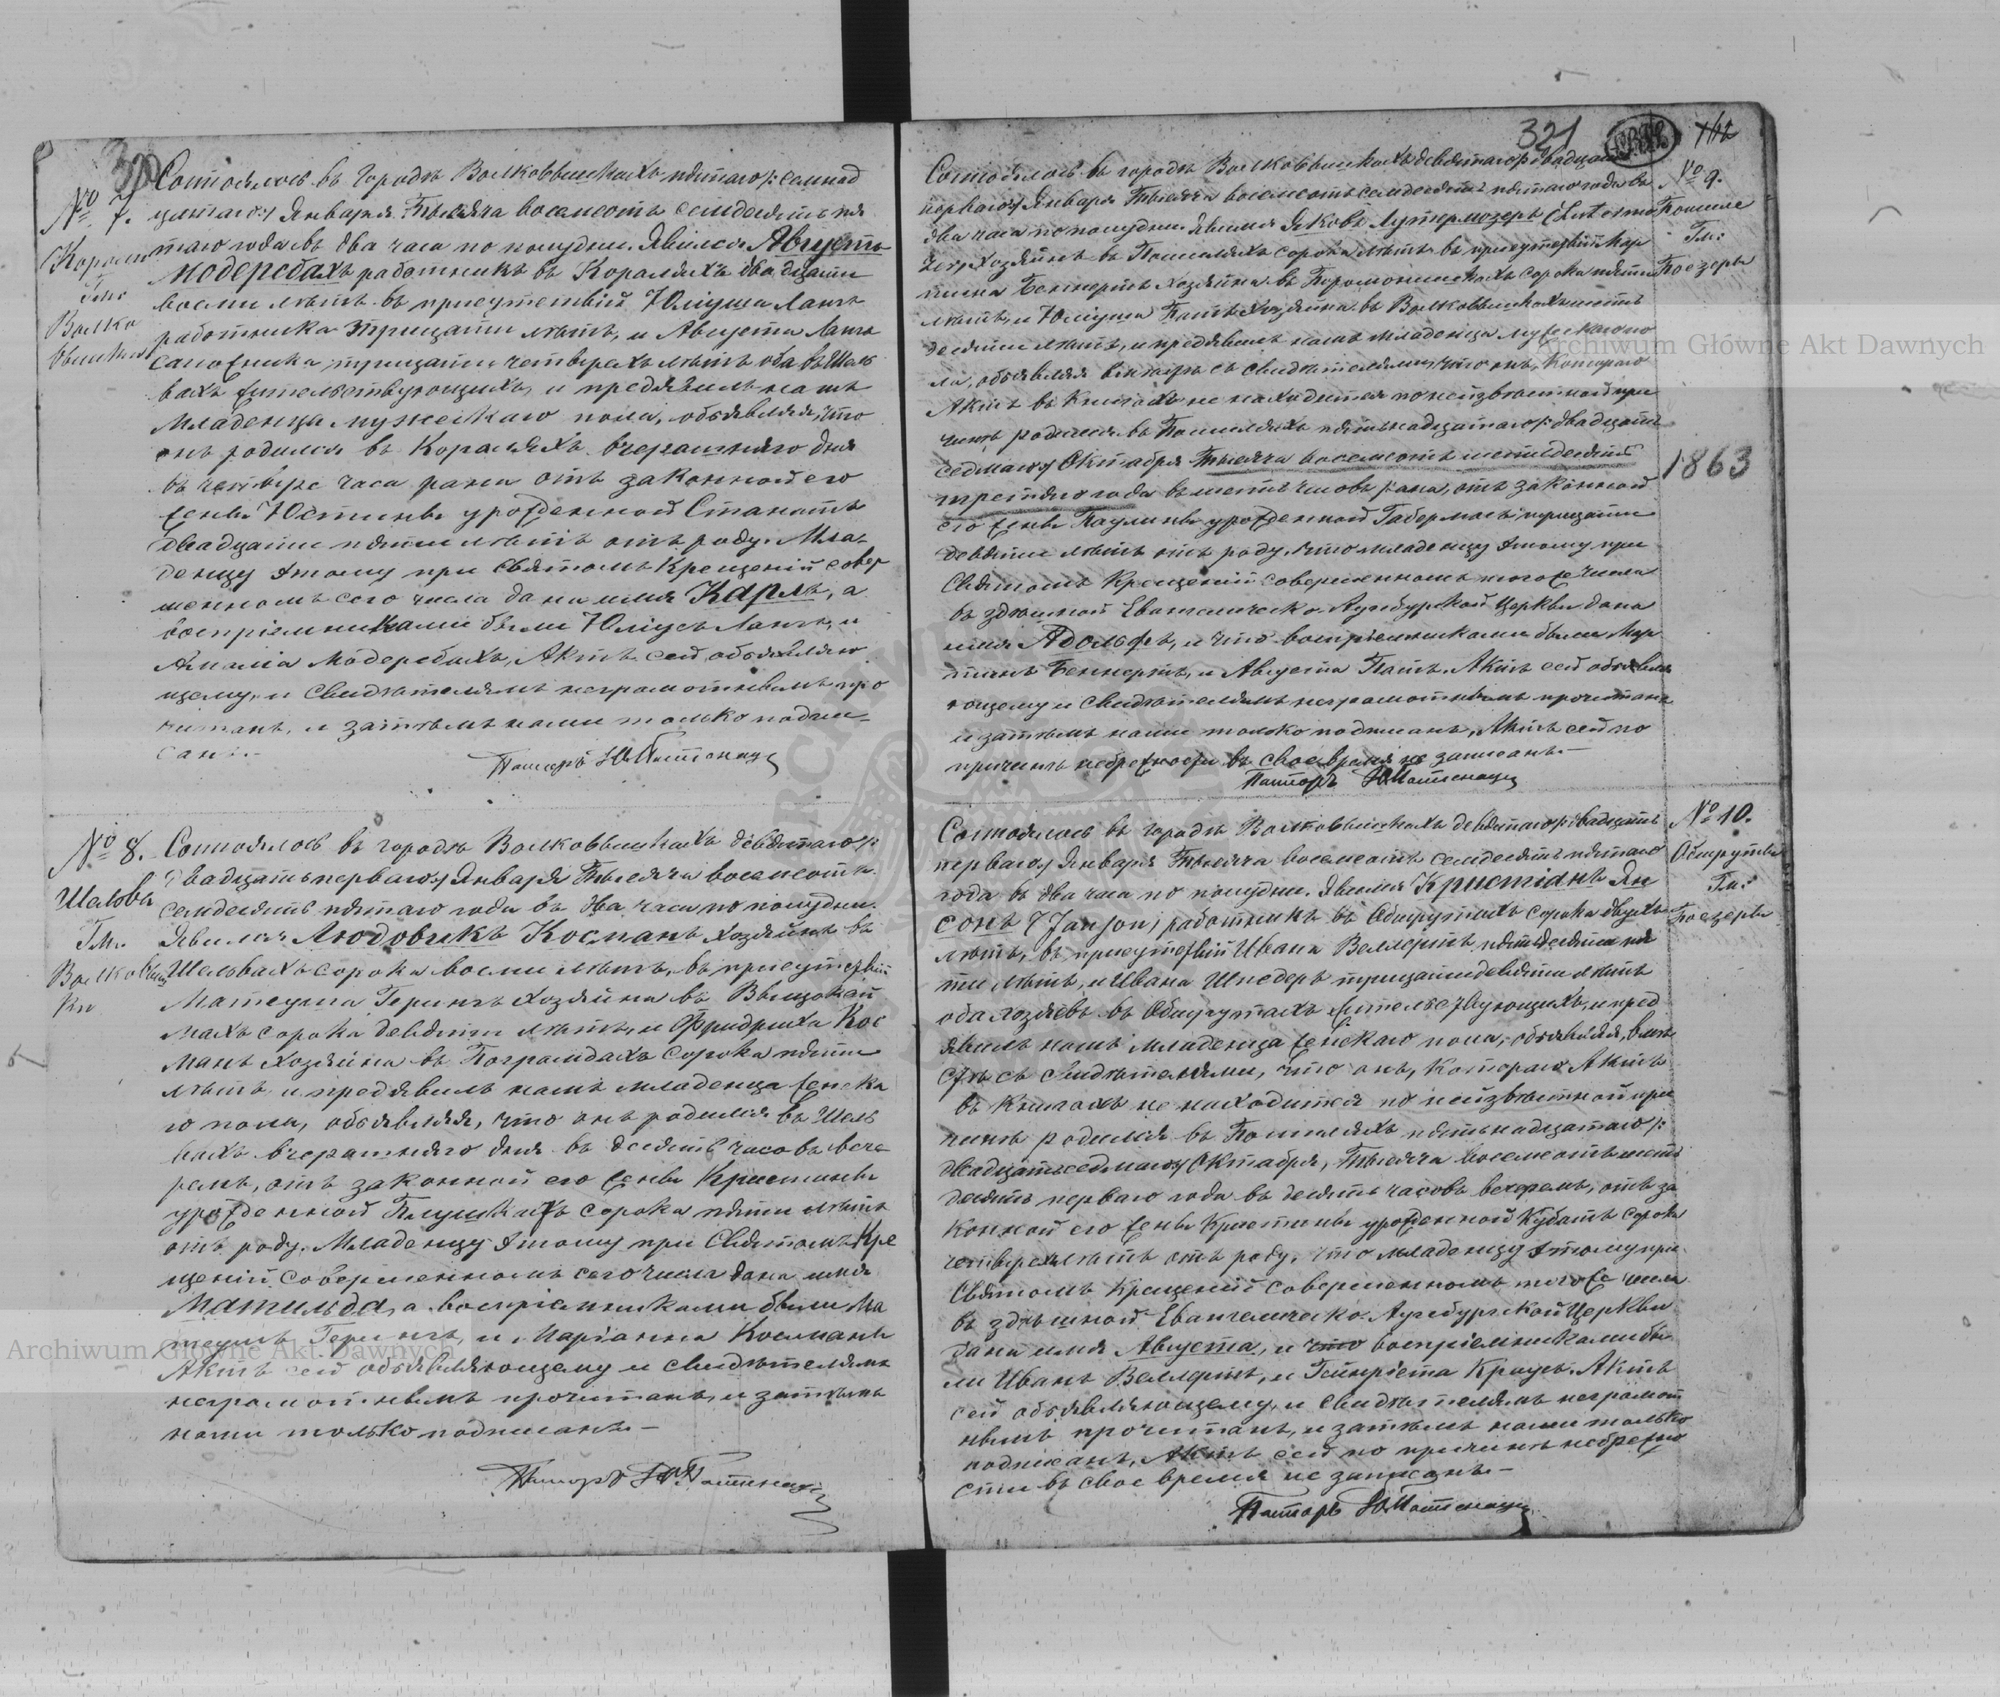 320
№ 7.
Корали
Гм:
Волко
вышки
Состоялось въ городѣ Волковышкахъ пятаго /: семнад
цатаго:/ Января Тысяча восемсотъ семдесятъ пя
таго года въ два часа по полудни. Явился Августъ
Модеребахъ работникъ въ Коралахъ двадцати
восми лѣтъ въ присутствіи Юліуша Лангъ
работника тридцати лѣтъ, и Августа Лангъ
сапожника тридцати четырехъ лѣтъ оба въ
жительствующихъ, и предявилъ намъ
младенца мужескаго пола, объявляя, что
онъ родился въ Коралахъ вчерашняго дня
въ четыре часа рана отъ законной его
жены Юстины урожденной Станатъ
двадцати пяти лѣтъ отъ роду. Мла
денцу этому при Святомъ Крещеніи совер
шенномъ сего числа дано имя Карлъ, а
воспріемниками были Юліусъ Лангъ, и
Амалія Модеребахъ, Актъ сей объявляю
щему, и Свидѣтелямъ неграмотнымъ про
читанъ, и затѣмъ нами только подпи
санъ.-
Пасторъ
№ 8.
Шельвы
Гм.
Волковыш
ки
Состоялось въ городѣ Волковышкахъ девятаго /:
двадцать перваго:/ Января Тысяча восемсотъ
семдесятъ пятаго года въ два часа по полудни.
Явился Людовикъ Косманъ хозяинъ въ
Шельвахъ сорока восми лѣтъ, въ присутствіи
Матеуша Герингъ хозяина въ
сорока девяти лѣтъ, и Фридриха Кос
манъ хозяина въ Пограмдахъ сорока пяти
лѣтъ, и предявилъ намъ младенца женска
го пола, объявляя, что онъ родился въ Шель
вахъ вчерашняго дня въ десять часовъ вече
ромъ, отъ законной его жены Кристины
урожденной сорока пяти лѣтъ
отъ роду. Младенцу этому при Святомъ Кре
щеніи совершенномъ сего числа дано имя
Матильда, а воспріемниками были Ма
теушъ Герингъ, и Маріанна Косманъ
Актъ сей объявляющему и свидѣтелямъ
неграмотнымъ прочитанъ, и затѣмъ
нами только подписанъ.-
Пасторъ
321
162
№ 9.
Пошиле
Гм:
Поезеры
1863
Состоялось въ городѣ Волковышкахъ девятаго /: двадцать
перваго:/ Января Тысяча восемсотъ семдесятъ пятаго года въ
два часа по полудни. Явился Яковъ Лутермозеръ (Lutermo
zer) хозяинъ въ Пошиляхъ сорока лѣтъ въ присутствіи Мар
тина Беннертъ хозяина въ сорока пяти
лѣтъ, и Юліуша Патъ хозяина въ Волковышкахъ
десяти лѣтъ, и предявилъ намъ младенца мужескаго по
ла, объявляя вмѣстѣ съ свидѣтелями, что онъ, котораго
Актъ въ Книгахъ не находится по неизвѣстной при
чинѣ родился въ Пошиляхъ пятьнадцатаго /: двадцать
седмаго:/ Октября Тысяча восемсотъ шестдесятъ
третьяго года въ шесть часовъ рана, отъ законной
его жены Паулины урожденной Габерманъ тридцати
девяти лѣтъ отъ роду, что младенцу этому при
Святомъ Крещеніи совершенномъ тогоже числа
въ здѣшной Евангелическо-Аугсбургской Церкви дано
имя Адольфъ, и что воспріемниками были Мар
тинъ Беннертъ, и Августа Патъ. Актъ сей объявля
ющему и Свидѣтелямъ неграмотнымъ прочитанъ
и затѣмъ нами только подписанъ, Актъ сей по
причинѣ небрежности въ свое время не записанъ.-
Пасторъ
№ 10.
Обшруты
Гм:
Поезеры
Состоялось въ городѣ Волковышкахъ девятаго /: двадцать
перваго:/ Января Тысяча восемсотъ семдесятъ пятаго
года въ два часа по полудни. Явился Кристіанъ Ян
сонъ (Janson) работникъ въ Обшрутахъ сорока двухъ
лѣтъ, въ присутствіи Ивана Веллертъ пятьдесяти пя
ти лѣтъ, и Ивана Шнедеръ тридцати девяти лѣтъ
оба хозяевъ въ Обшрутахъ жительствующихъ, и пред
явилъ намъ младенца женскаго пола, объявляя, вмѣ
стѣ съ свидѣтелями, что онъ, котораго Актъ
въ книгахъ не находится по неизвѣстной при
чинѣ родился въ Пошиляхъ пятьнадцатаго /:
двадцать седмаго:/ Октября, Тысяча восемсотъ шесть
десятъ перваго года въ десять часовъ вечеромъ, отъ за
конной его жены Кристины урожденной Кубатъ сорока
четырехъ лѣтъ отъ роду, что младенцу этому при
Святомъ Крещеніи совершенномъ тогоже числа
въ здѣшной Евангелическо-Аугсбургской Церкви
дано имя Августа, и что воспріемниками бы
ли Иванъ Веллертъ, и Генріета Краузъ. Актъ
сей объявляющему, и свидѣтелямъ неграмот
нымъ прочитанъ, и затѣмъ нами только
подписанъ, Актъ сей по причинѣ небрежно
сти въ свое время не записанъ.-
Пасторъ
Archiwum Główne Akt Dawnych
Archiwum Główne Akt Dawnych